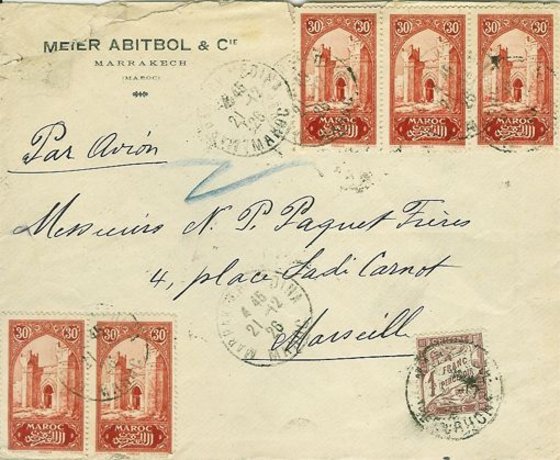 MEIER ABITBOL & CIE
MARRAKECH
(MAROC)
30 30 30 30 30 30
MAROC MAROC MAROC
45
21-12
26
MAROC
Par Avion
Messieurs N. P. Paquet Frères
4, place Sadi Carnot
Marseill
MEDINA
45
21-12
26
MAROC
30 30 30 30
MAROC MAROC
1 FRANC